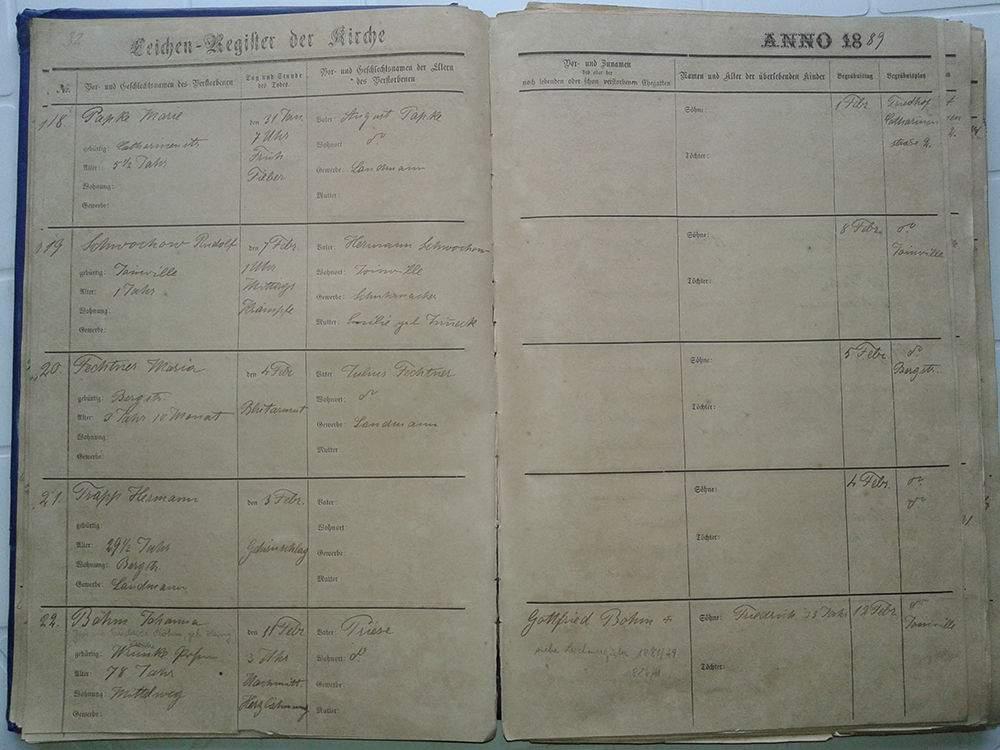 82
Leichen-Register der Kirche
ANNO 1889
Nr.
Vor- und Geschlechtsnamen des Verstorbenen
Tag und Stunde
des Todes
Vor- und Geschlechtsnamen der Eltern
des Verstorbenen
Vor- und Zunamen
des oder der
noch lebenden oder schon verstorbenen Ehegatten
Namen und Alter der überlebenden Kinder
Begräbnißtag
Begräbnißplatz
118.
Papke Marie
gebürtig: Catharinenstr
Alter: 5 1/2 Jahr
Wohnung:
Gewerbe:
den 31 Jan
7 Uhr
Früh
Fieber
Vater: August Papke
Wohnort: do
Gewerbe: Landmann
Mutter:
Söhne:
Töchter:
1 Febr
Friedhof
Catharinen
straße 2.
119
Schwochow Rudolf
gebürtig: Joinville
Alter: 1 Jahr
Wohnung:
Gewerbe:
den 7 Febr.
1 Uhr
Mittags
Krämpfe
Vater: Hermann Schwochow
Wohnort: Joinville
Gewerbe: Schuhmacher
Mutter: Emilie geb
Söhne:
Töchter:
8 Febr.
do
Joinville
20.
Fechtner Maria
gebürtig: Bergstr.
Alter: 3 Jahr 10 Monat
Wohnung:
Gewerbe:
den 4 Febr
Blutarmut
Vater: Julius Fechtner
Wohnort: do
Gewerbe: Landmann
Mutter
Söhne:
Töchter:
5 Febr
do
Bergstr.
21.
Trapp Hermann
gebürtig:
Alter: 29 1/2 Jahr
Wohnung: Bergstr.
Gewerbe: Landmann
den 3 Febr.
Gehirnschlag
Vater:
Wohnort:
Gewerbe:
Mutter
Söhne:
Töchter:
4 Febr.
do
do
22.
Böhm Johanna
gebürtig:
Alter 78 Jahr
Wohnung: Mittelweg
Gewerbe:
den 11 Febr
3 Uhr
Nachmitt.
Herzlähmung
Vater: Triese
Wohnort: do
Gewerbe:
Mutter:
Gottfried Böhm +
siehe Leichenregister
Söhne: Friedrich 33 Jahr
Töchter:
12 Febr.
do
Joinville